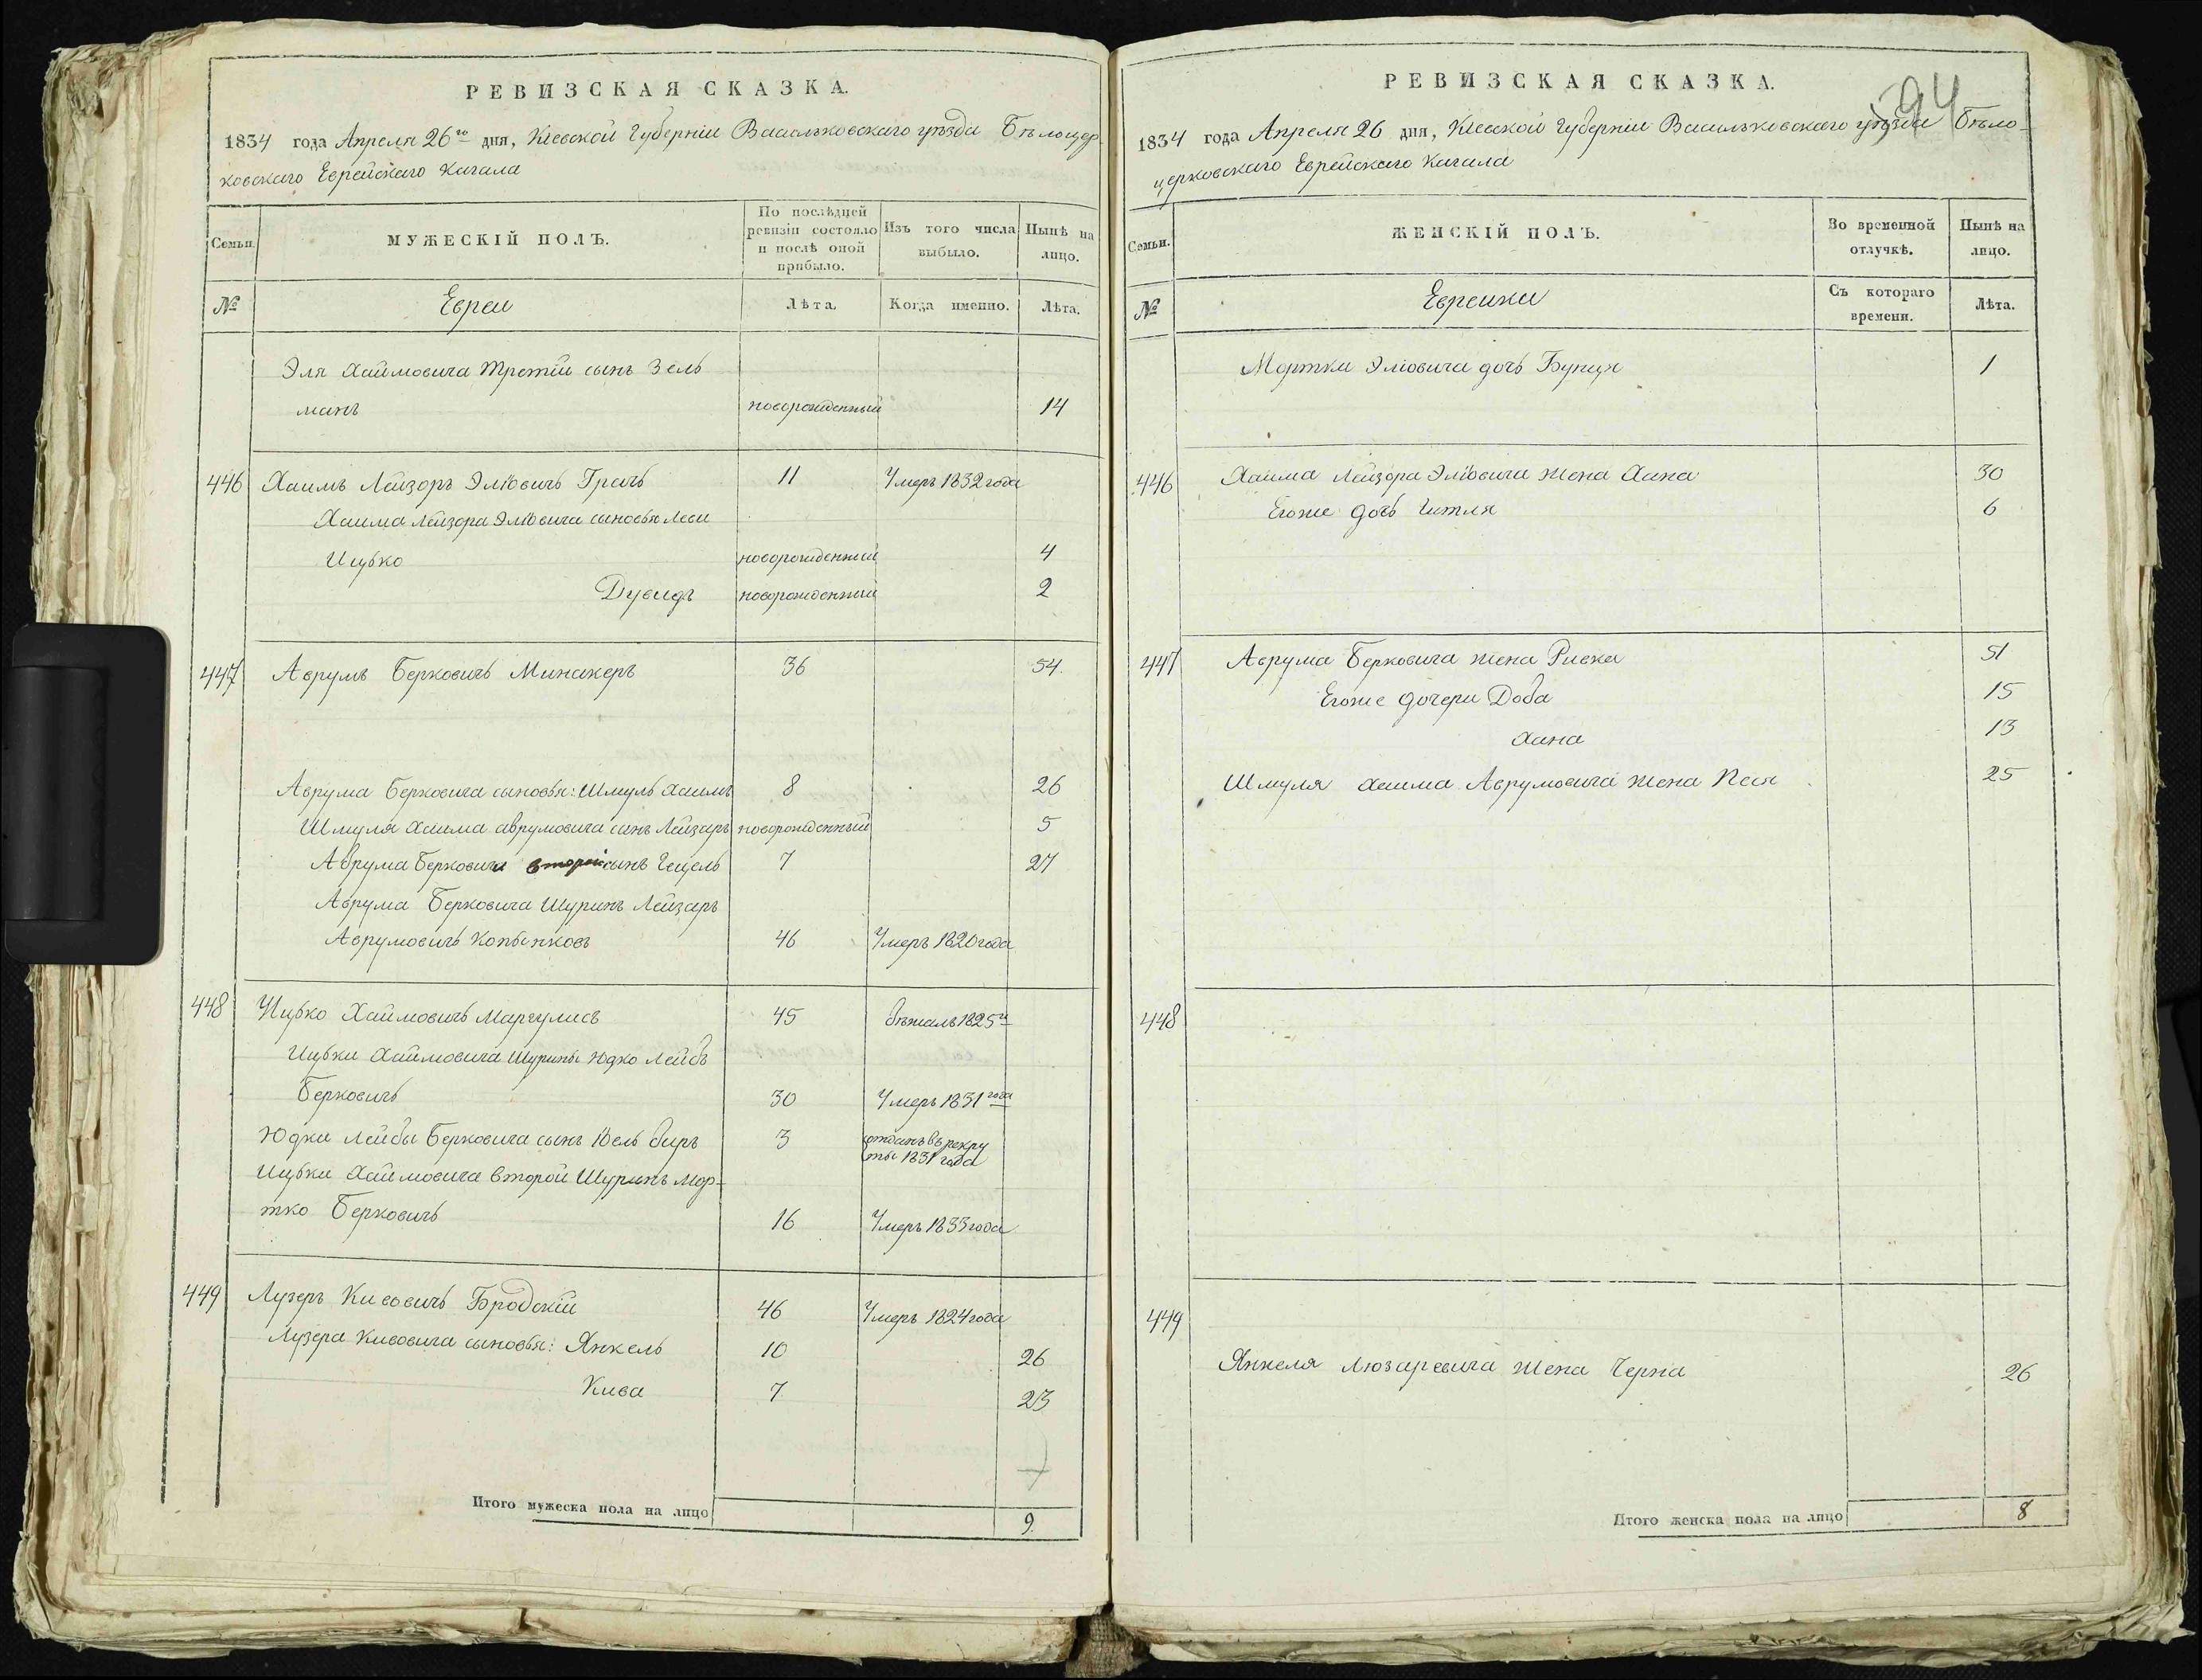 РЕВИЗСКАЯ СКАЗКА.
1834 года Апреля 26го дня, Кіевской Губерніи Васильковскаго уѣзда Бѣлоцер
ковскаго Еврейскаго Кагала
Семьи.
МУЖЕСКІЙ ПОЛЪ.
По послѣдней
ревизіи состояло
и послѣ оной
прибыло.
Изъ того числа
выбыло.
Нынѣ на
лицо.
№
Евреи
Лѣта.
Когда именно.
Лѣта.
Эля Хаймовича третій сынъ Зель
манъ новорожденный 14
446 Хаимъ Лейзоръ Эліовичъ Грачъ 11 Умеръ 1832 года
Хаима Лейзора Эліовича сыновья
Ицько новорожденный 4
Дувидъ новорожденный 2
447 Аврумъ Берковичъ Минакеръ 36 54
Аврума Берковича сыновья: Шмуль Хаимъ 8 26
Шмуля Хаима Аврумовича сынъ Лейзаръ новорожденный 5
Аврума Берковича второй сынъ Гецель 7 27
Аврума Берковича Шуринъ Лейзаръ
Аврумовичъ 46 Умеръ 1820 года
448 Ицько Хаймовичъ Маргулисъ 45 бѣжалъ 1825
Ицьки Хаймовича Шурины Юдко Лейбъ
Берковичъ 30 Умеръ 1831 года
Юдки Лейбы Берковича сынъ 3 отданъ въ рекру
ты 1831 года
Ицьки Хаймовича второй Шуринъ Мор-
тко Берковичъ 16 Умеръ 1833 года
449 Лузеръ Кивовичъ Бродскій 46 Умеръ 1824 года
Лузера Кивовича сыновья: Янкель 10 26
Кива 7 23
Итого мужеска пола на лицо 9.
94
РЕВИЗСКАЯ СКАЗКА.
1834 года Апреля 26 дня, Кіевской Губерніи Васильковскаго уѣзда Бѣло-
церковскаго Еврейскаго Кагала
Семьи.
ЖЕНСКІЙ ПОЛЪ.
Во временной
отлучкѣ.
Нынѣ на
лицо.
№
Еврейки
Съ котораго
времени.
Лѣта.
Мортки Эліовича дочь Бунця 1
446 Хаима Лейзора Эліовича жена Хана 30
Егоже дочь Гитля 6
447 Аврума Берковича жена Ривка 51
Егоже дочери Доба 15
Хана 13
Шмуля Хаима Аврумовича жена Песя 25
448
449
Янкеля Люзаревича жена Черна 26
Итого женска пола на лицо 8